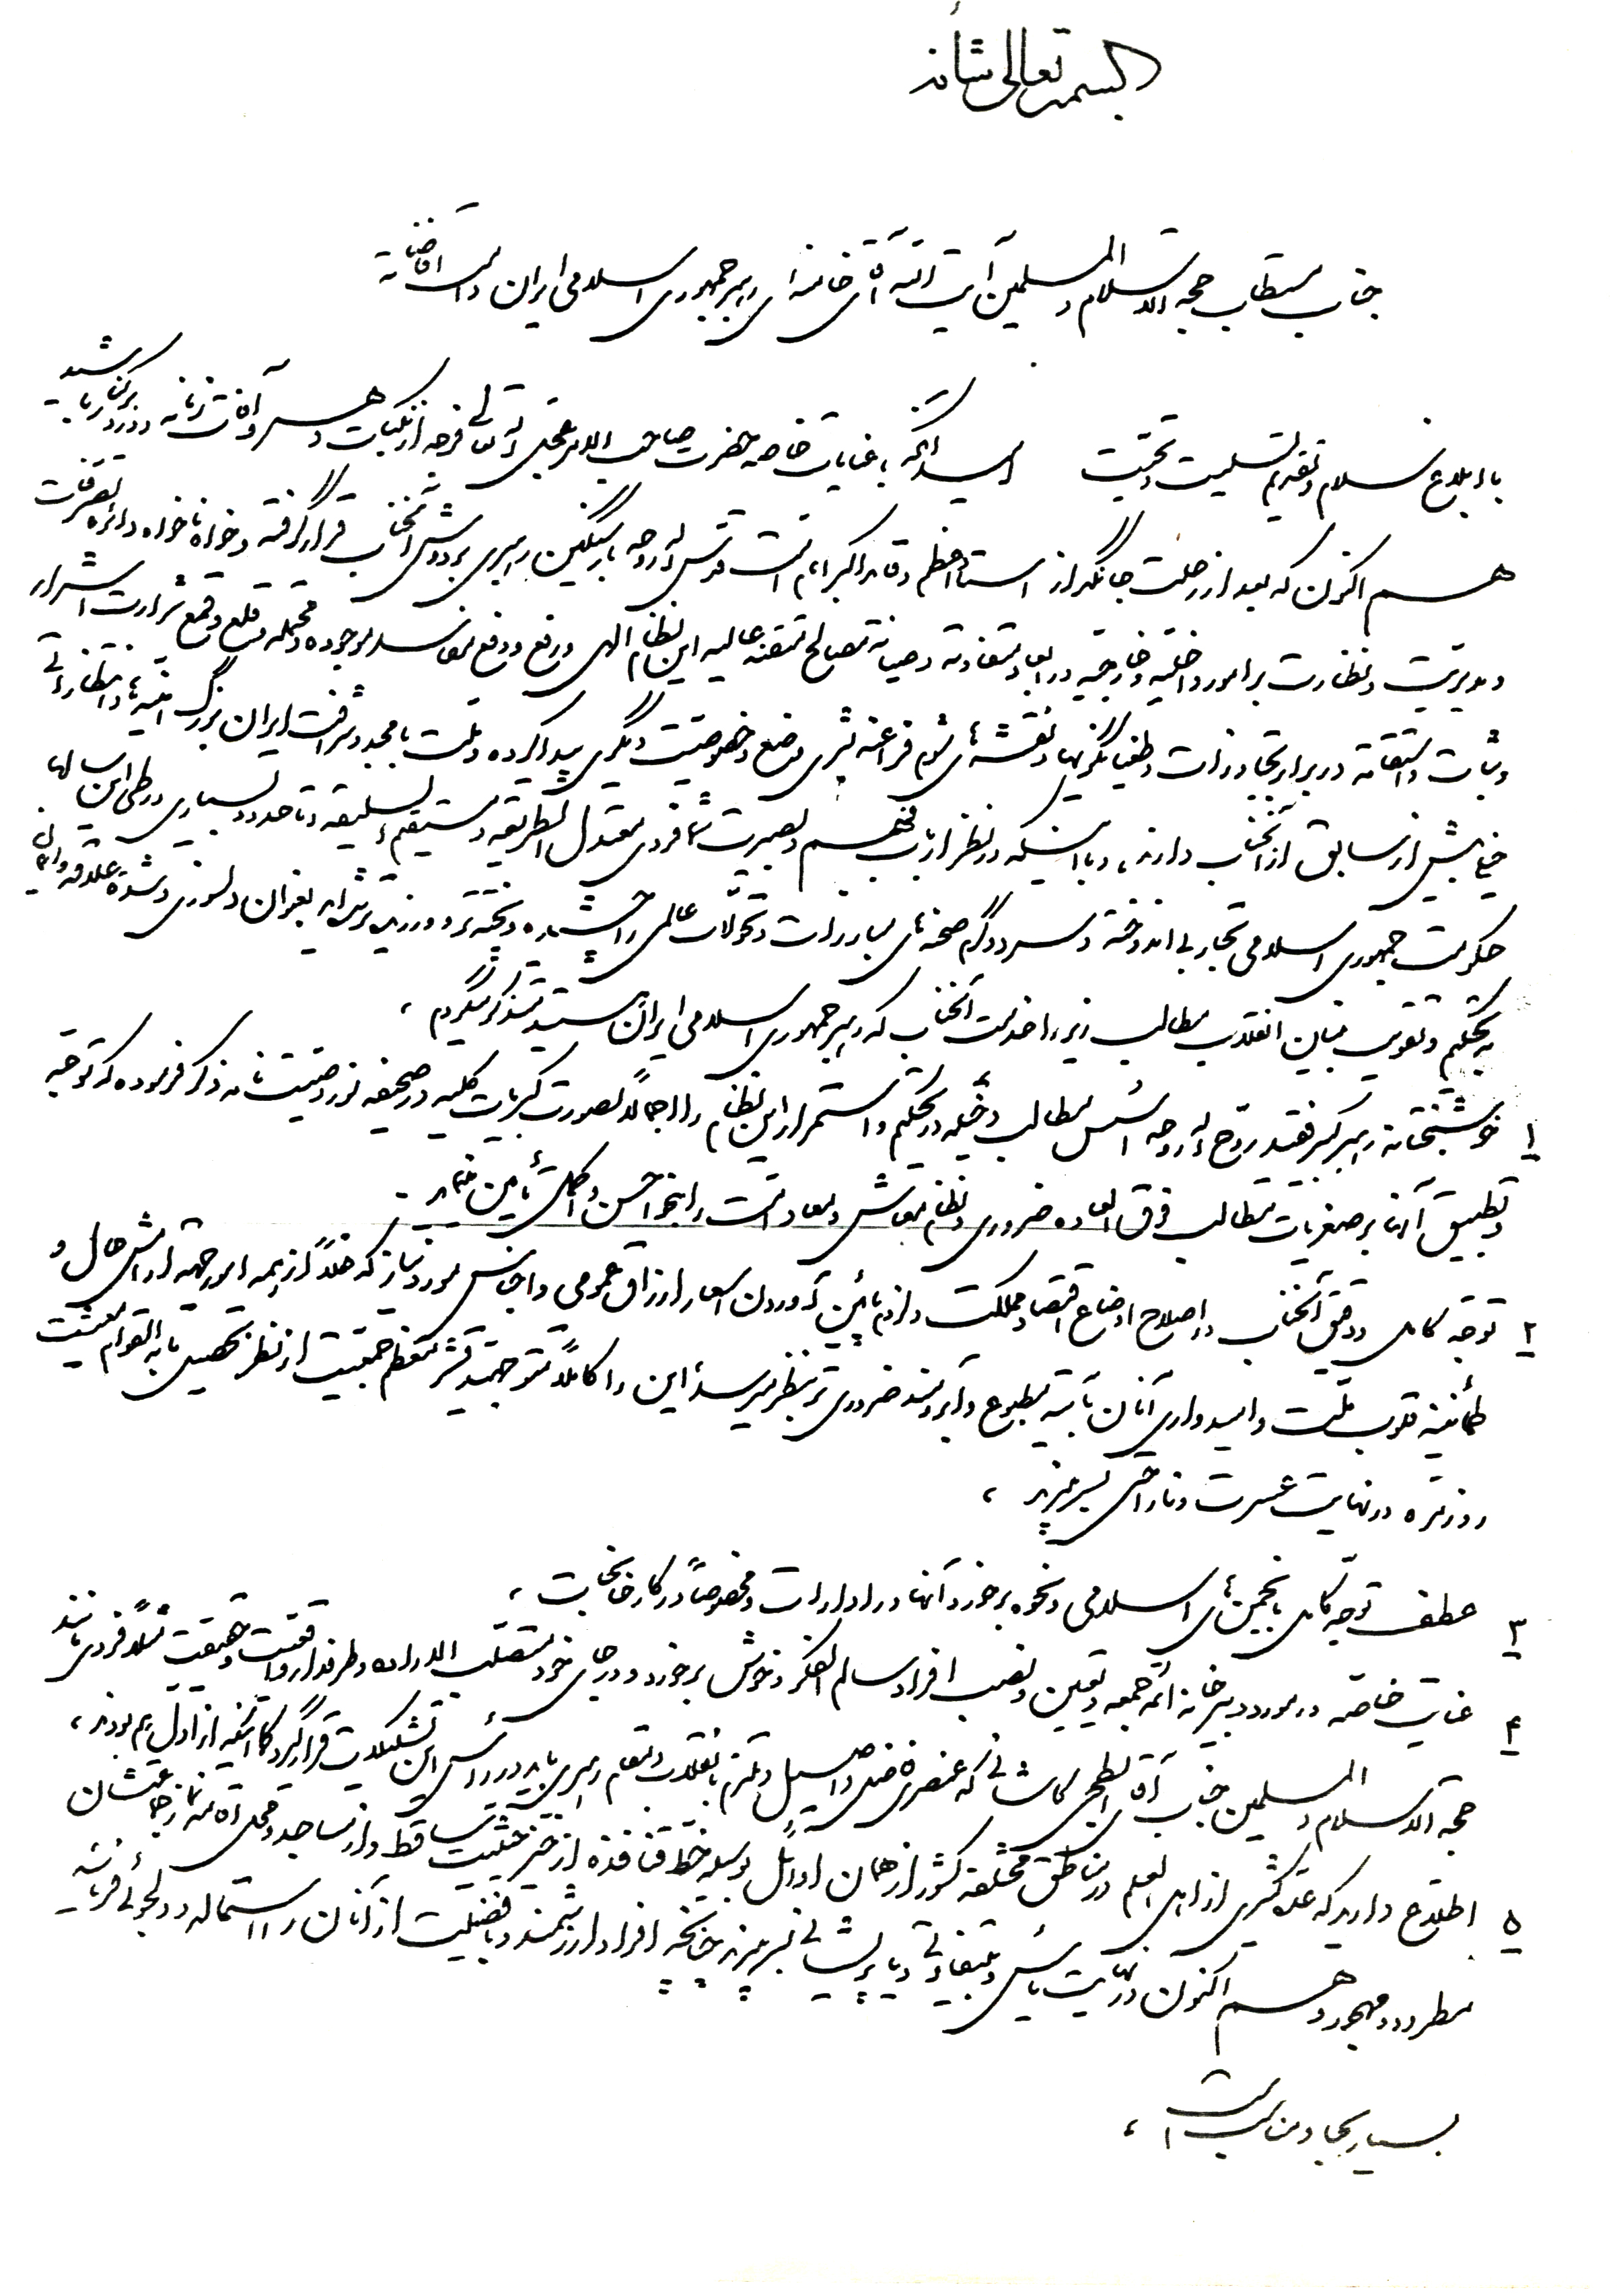 بسمه تعالی شأنه
جناب مستطاب حجة الاسلام و المسلمین آیت الله آقای خامنه ای رهبر جمهوری اسلامی ایران دامت افاضاته
با ابلاغ سلام و تقدیم تسلیت و تحیت امید آنکه با عنایات خاصه حضرت صاحب الامر عجل الله تعالی فرجه از نکبات دهر و آفات زمانه بدور و برکنار باشید
هم اکنون که بعد از رحلت جانگداز استاد اعظم و قائد اکبر امام امت قدس الله روحه بار سنگین رهبری بر دوش آنجناب قرار گرفته و خواه ناخواه دائره تصرفات
و مدیریت و نظارت بر امور داخلیه و خارجیه در ابعاد متفاوته و صیانة مصالح متقنه عالیه این نظام الهی و رفع و دفع مفاسد موجوده و محتمله و قلع و قمع شرارت اشرار
و ثبات و استقامة در برابر تجاوزات و طغیانگریها و نقشه های شوم فراعنه بشری وضع و خصوصیت دیگری پیدا کرده و ملت با مجد و شرافت ایران بزرگ امنیه ها و انتظاراتی
خیلی بیش از سابق از آنجناب دارند، و با اینکه در نظر ارباب فهم و بصیرت شما فردی معتدل الطریقه و مستقیم السلیقه و تا حدود بسیاری در طی این سالها
حکومت جمهوری اسلامی تجاربی اندوخته و سرد و گرم صحنه های مبارزات و تحولات عالمی را چشیده و پخته تر و ورزیده تر شده اید بعنوان دلسوزی و شدة علاقه وافی
به تحکیم و تقویت مبانی انقلاب مطالب زیر را خدمت آنجناب که رهبر جمهوری اسلامی ایران هستید متذکر میگردم ،
۱ خوشبختانه رهبر کبیر فقید روح الله روحه اسس مطالب دخیله در تحکیم و استمرار این نظام را اجمالاً بصورت کبریات کلیه در صحیفه نور وصیت نامه ذکر فرموده که توجه
و تطبیق آنها بر صغریات مطالب فوق العاده ضروری و نظام معاش و معاد امت را بنحو احسن و اکمل تأمین مینماید .
۲ توجه کامل و دقیق آنجناب در اصلاح اوضاع اقتصاد مملکت و لزوم پائین آوردن اسعار ارزاق عمومی و اجناس مورد نیاز که فعلاً از همه امور جهة آرامش حال و
طمأنینه قلوب ملت و امیدواری آنان به آتیه مطبوع و آبرومند ضروری تر بنظر میرسد این را کاملاً متوجهید قشر معظم جمعیت از نظر تحصیل ما به القوام معیشت
روزمره در نهایت عسرت و ناراحتی بسر میبرند ،
۳ عطف توجه کامل بانجمن های اسلامی و نحوه برخورد آنها در ادارات و مخصوصاً در کارخانجات ،
۴ عنایت خاصه در مورد دبیرخانه ائمه جمعه و تعیین و نصب افراد سالم الفکر و خوش برخورد و در جای خود متصلب الاراده و طرفدار واقعیت و حقیقت مثلاً فردی مانند
حجة الاسلام و المسلمین جناب آقای امامی کاشانی که عنصری فاضل و اصیل و ملتزم بانقلاب و مقام رهبری باید در رأس این تشکیلات قرار گیرد کما اینکه از اول هم بودند ،
۵ اطلاع دارید که عده کثیری از اهل العلم در مناطق مختلفه کشور از همان اوائل بوسیله خط قنافذه از حیز حیثیت ساقط و از مساجد و محل اقامه نماز جماعتشان
مطرود و مهجور و هم اکنون در نهایت یأس و بلاتکلیفی و یا پریشانی بسر میبرند چنانچه افراد ارزشمند و با فضیلت از آنان را استماله و دلجوئی فرمائید
بسیار بجا و مناسب است ،